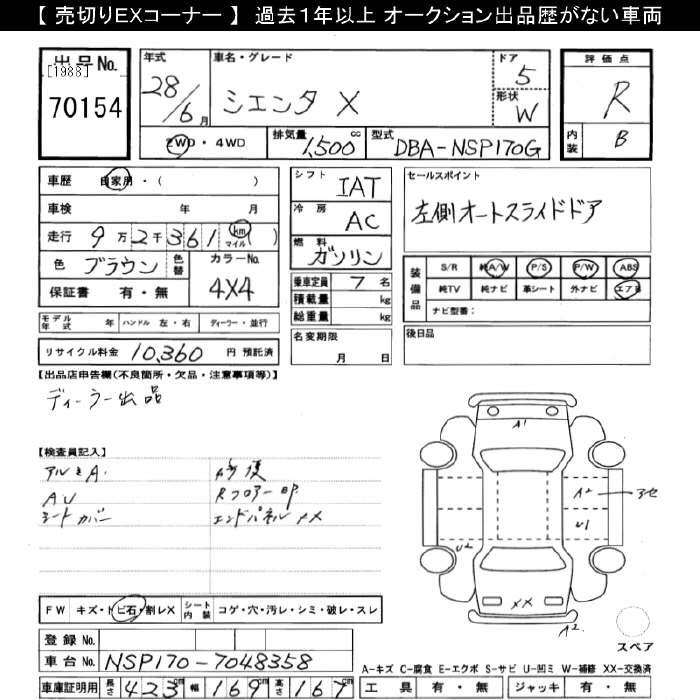 【 売切りEXコーナー 】 過去1年以上 オークション出品歴がない車両
出品No.
[1988]
70154
年式
28/6月
車名・グレード
シエンタ X
ドア
5
形状
W
評価点
R
内装
B
2WD・4WD
排気量 1,500 cc
型式 DBA-NSP170G
車歴 自家用・( )
車検 年 月
走行 9万2千361 km マイル ( )
色 ブラウン 色替
カラーNo. 4X4
保証書 有・無
シフト IAT
冷房 AC
燃料 ガソリン
乗車定員 7 名
積載量 kg
総重量 kg
セールスポイント
左側オートスライドドア
装備品
S/R 純A/W P/S P/W ABS
純TV 純ナビ 革シート 外ナビ エアB
ナビ型番:
モデル年式 年 ハンドル 左・右 ディーラー・並行
リサイクル料金 10,360 円 預託済
名変期限
月 日
後日品
【出品店申告欄(不良箇所・欠品・注意事項等)】
ディーラー出品
【検査員記入】
アルミA.
AU
シートカバー
修復
Rフロアー凹
エンドパネルXX
A1
A2
アセ
U1
U2
XX
A2
スペア
FW キズ・トビ石・割レX
シート内装 コゲ・穴・汚レ・シミ・破レ・スレ
登録No.
車台No. NSP170-7048358
A-キズ C-腐食 E-エクボ S-サビ U-凹ミ W-補修 XX-交換済
車庫証明用 長さ 423cm 幅 169cm 高さ 167cm
工具 有・無 ジャッキ 有・無